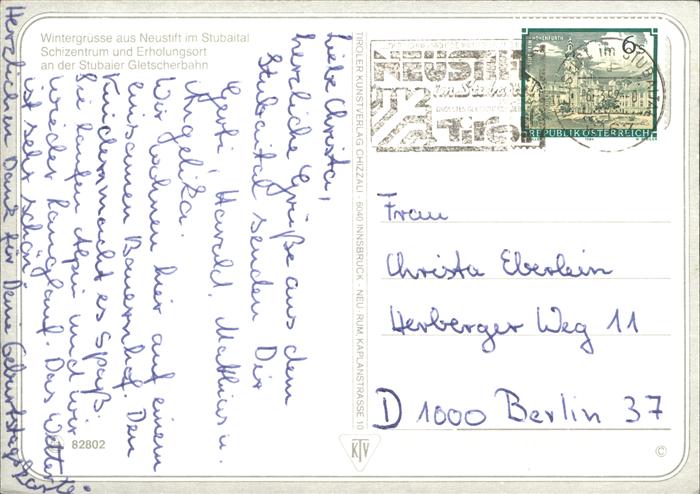 Wintergrüsse aus Neustift im Stubaital
Schizentrum und Erholungsort
an der Stubaier Gletscherbahn
Liebe Christa,
herzliche Grüße aus dem
Stubaital senden Dir
Gerti, Harald, Mathias u.
Angelika.
Wir wohnen hier auf einem
einsamen Bauernhof. Den
Kindern macht es Spaß.
Sie laufen Alpin und wir
wieder Langlauf. Das Wetter
ist sehr schön.
Herzlichen Dank für Deine Geburtstags
82802
TIROLER KUNSTVERLAG CHIZZALI · 6040 INNSBRUCK - NEU-RUM, KAPLANSTRASSE 10
KTV
NEUSTIFT
im Stubai
Tirol
6 S
REPUBLIK ÖSTERREICH
Frau
Christa Eberlein
Herberger Weg 11
D 1000 Berlin 37
©